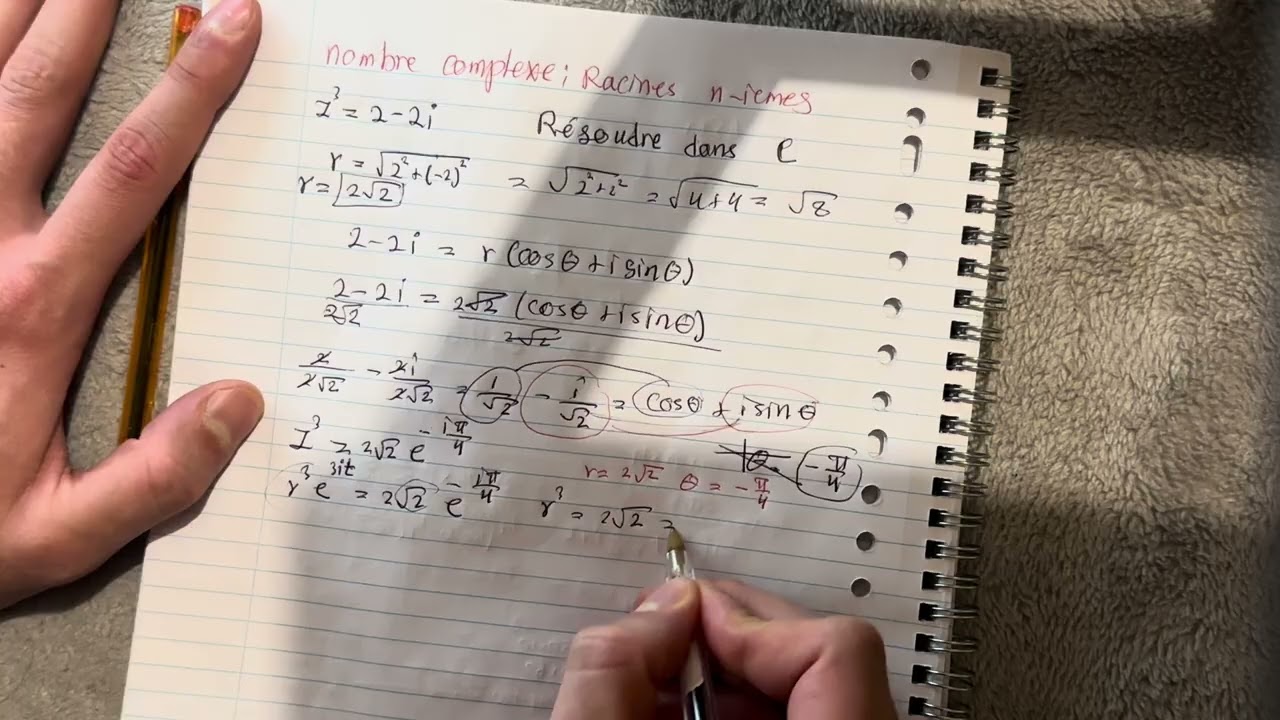 nombre complexe; Racines n-ièmes
Z³ = 2-2i Résoudre dans C
r = √(2²+(-2)²) = √(2²+2²) = √(4+4) = √8
r = 2√2
2-2i = r(cosθ+isinθ)
(2-2i)/(2√2) = (2√2(cosθ+isinθ))/(2√2)
2/(2√2) - 2i/(2√2) = 1/√2 - i/√2 = cosθ + isinθ
Z³ = 2√2 e^(-iπ/4) θ -π/4
r = 2√2 θ = -π/4
r³e^(3it) = 2√2 e^(-iπ/4) r³ = 2√2 =